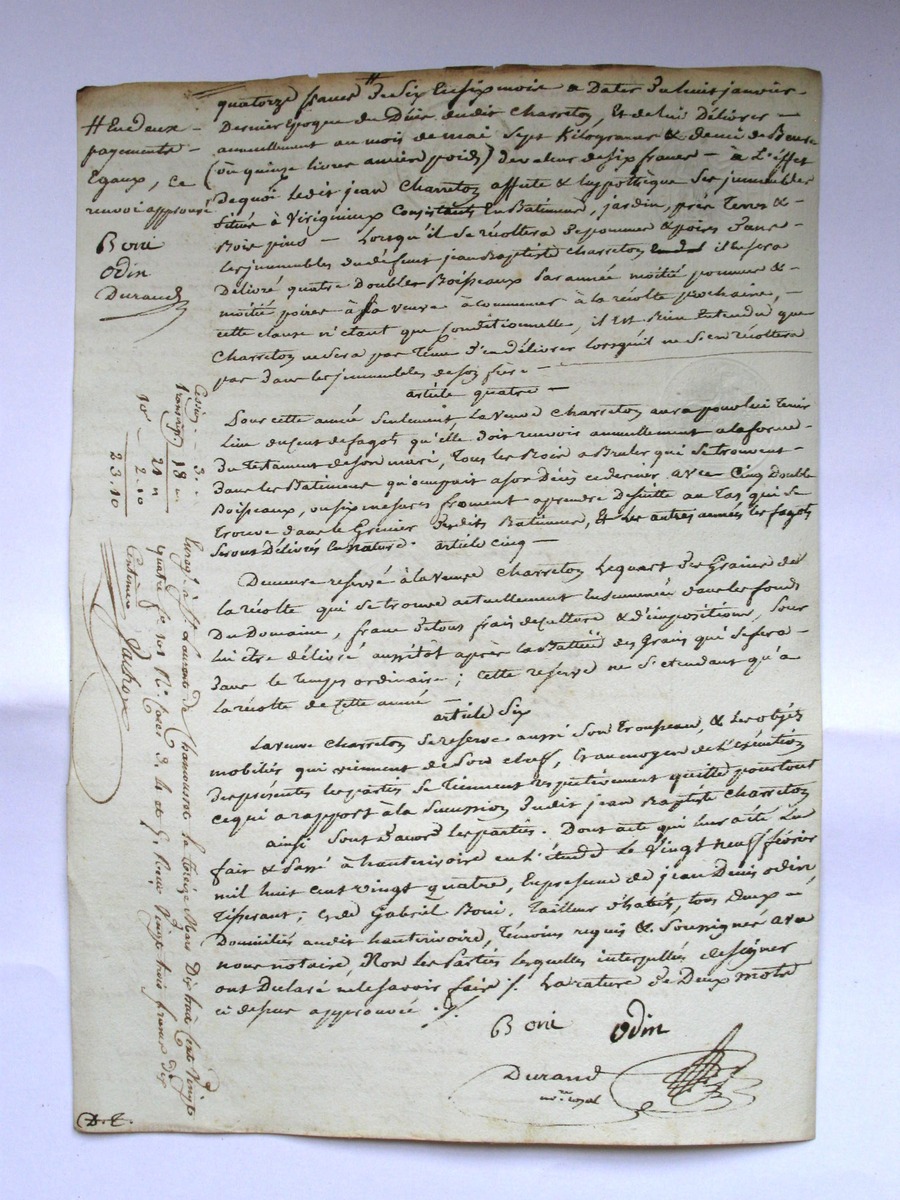 quatorze francs # de six en six mois a dater du huit janvier
Dernier Epoque du Décès dudit Charreton, Et de lui Délivrer
annuellement au mois de mai sept Kilogrames & demi de Beurre
(ou quinze livres ancien poids) de valeur de six francs – à L'effet
De quoi ledit jean Charreton affecte & hypothèque ses immeubles
Situés à Virigneux Consistants En Batiments, jardin, prés Terres &
Bois pins – Lorsqu'il se récoltera des pommes & poires dans
les immeubles du défunt jean Baptiste Charreton il lui sera
Délivré quatre doubles Boisseaux par année moitié pommes &
moitié poires à sa veuve à commencer à la récolte prochaine,
cette clause n'étant que Conditionnelle, il est bien Entendu que
Charreton ne sera pas tenu d'en délivrer lorsqu'il ne s'en récoltera
pas dans les immeubles de son frère –
article quatre –
Pour cette année seulement, la veuve Charreton aura pour lui tenir
Lieu du cent de fagots qu'elle doit recevoir annuellement à la forme
Du Testament de son mari, Tous les Bois a Bruler qui se trouvent
Dans les Batiments qu'occupait a son Décès ce dernier avec Cinq Double
Boisseaux, ou six mesures froment a prendre de suitte au Tas qui se
Trouve dans le Grenier desdits Batiments, Et les autres années les fagots
Seront Délivrés En nature. article cinq –
Demeure reservé à la veuve Charreton Le quart des Grains de
la récolte qui se trouve actuellement Ensemencée dans les fonds
Du Domaine, franc de tous frais de culture & d'impositions, pour
lui être délivré aussitôt après la Battue des Grains qui se fera
dans le Temps ordinaire ; Cette reserve ne s'etendant qu'a
la récolte de Cette année article Six
La veuve Charreton se reserve aussi Son Trousseau, & Les objets
mobiliés qui viennent de Son chef, Et au moyen de L'Exécution
Des présentes les parties se Tiennent respectivement quitte pour tout
Ce qui a rapport à la Succession dudit jean Baptiste Charreton
ainsi Sont d'accord les parties. Dont acte qui leur a été Lu
fait & Passé à hauterivoire en L'étude Le Vingt neuf février
mil huit cent vingt quatre, En présence de jean Denis odin
Tisserant, & de Gabriel Boni, Tailleur d'habits, tous Deux
Domiciliés audit hauterivoire, Témoins requis & Soussignés avec
nous notaire, Non les Parties lesquelles interpellées de signer
ont Déclaré ne le savoir faire /. La rature de Deux mots
ci dessus approuvée ./.
Boni Odin
Durand
n.re royal
# En deux
payements
Egaux, Ce
renvoi approuvé
Boni
Odin
Durand
Cession – 3
transaq.n 18
21
10e 2.10
23.10
Enreg. à St Laurent de Chamousset le treize Mars Dix huit Cent Vingt
quatre f.o
Reçu Vingt trois francs dix
Centimes
D. E.